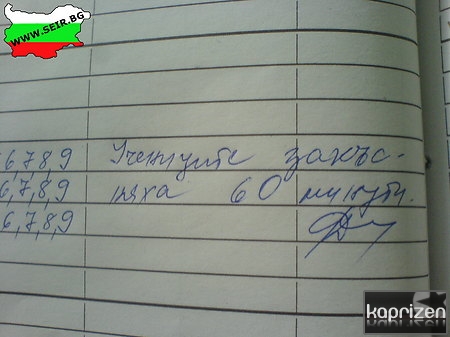 www.SEIR.BG
6,7,8,9 Учениците закъс-
6,7,8,9 няха 60 минути.
6,7,8,9
kaprizen